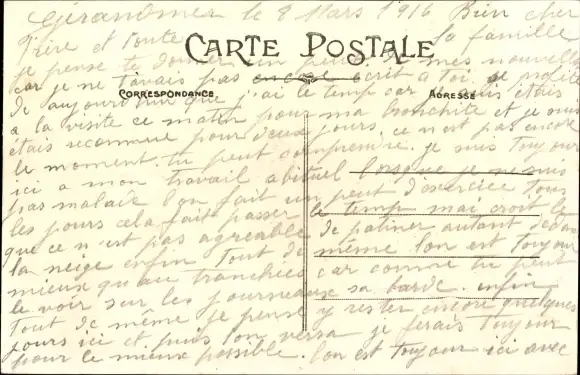 Gérardmer le 8 Mars 1916 Bien cher
Frère et toute la famille
CARTE POSTALE
je pense te donner un peut de mes nouvelles
car je ne t'avais pas encore écrit a toi. Je profite
CORRESPONDANCE
ADRESSE
de aujourd'hui que j'ai le temp car je suis étais
a la visite ce matin pour ma bronchite et je suis
étais reconnue pour deux jours. ce n'est pas encore
le moment. tu peut comprendre. je suis toujour
ici a mon travail abituel lorsque je ne suis
pas malade l'on fait un peut d'exercice tous
les jours cela fait passer le temp mai croit le
que ce n'est pas agreable de patiner autant dedans
la neige enfin tout de même l'on est toujour
mieux qu'au tranchées car comme tu peut
le voir sur les journeaux sa barde. enfin
tout de même je pense y rester encore quelques
jours ici et puis l'on versa je ferais toujour
pour le mieux possible. l'on est toujour ici avec